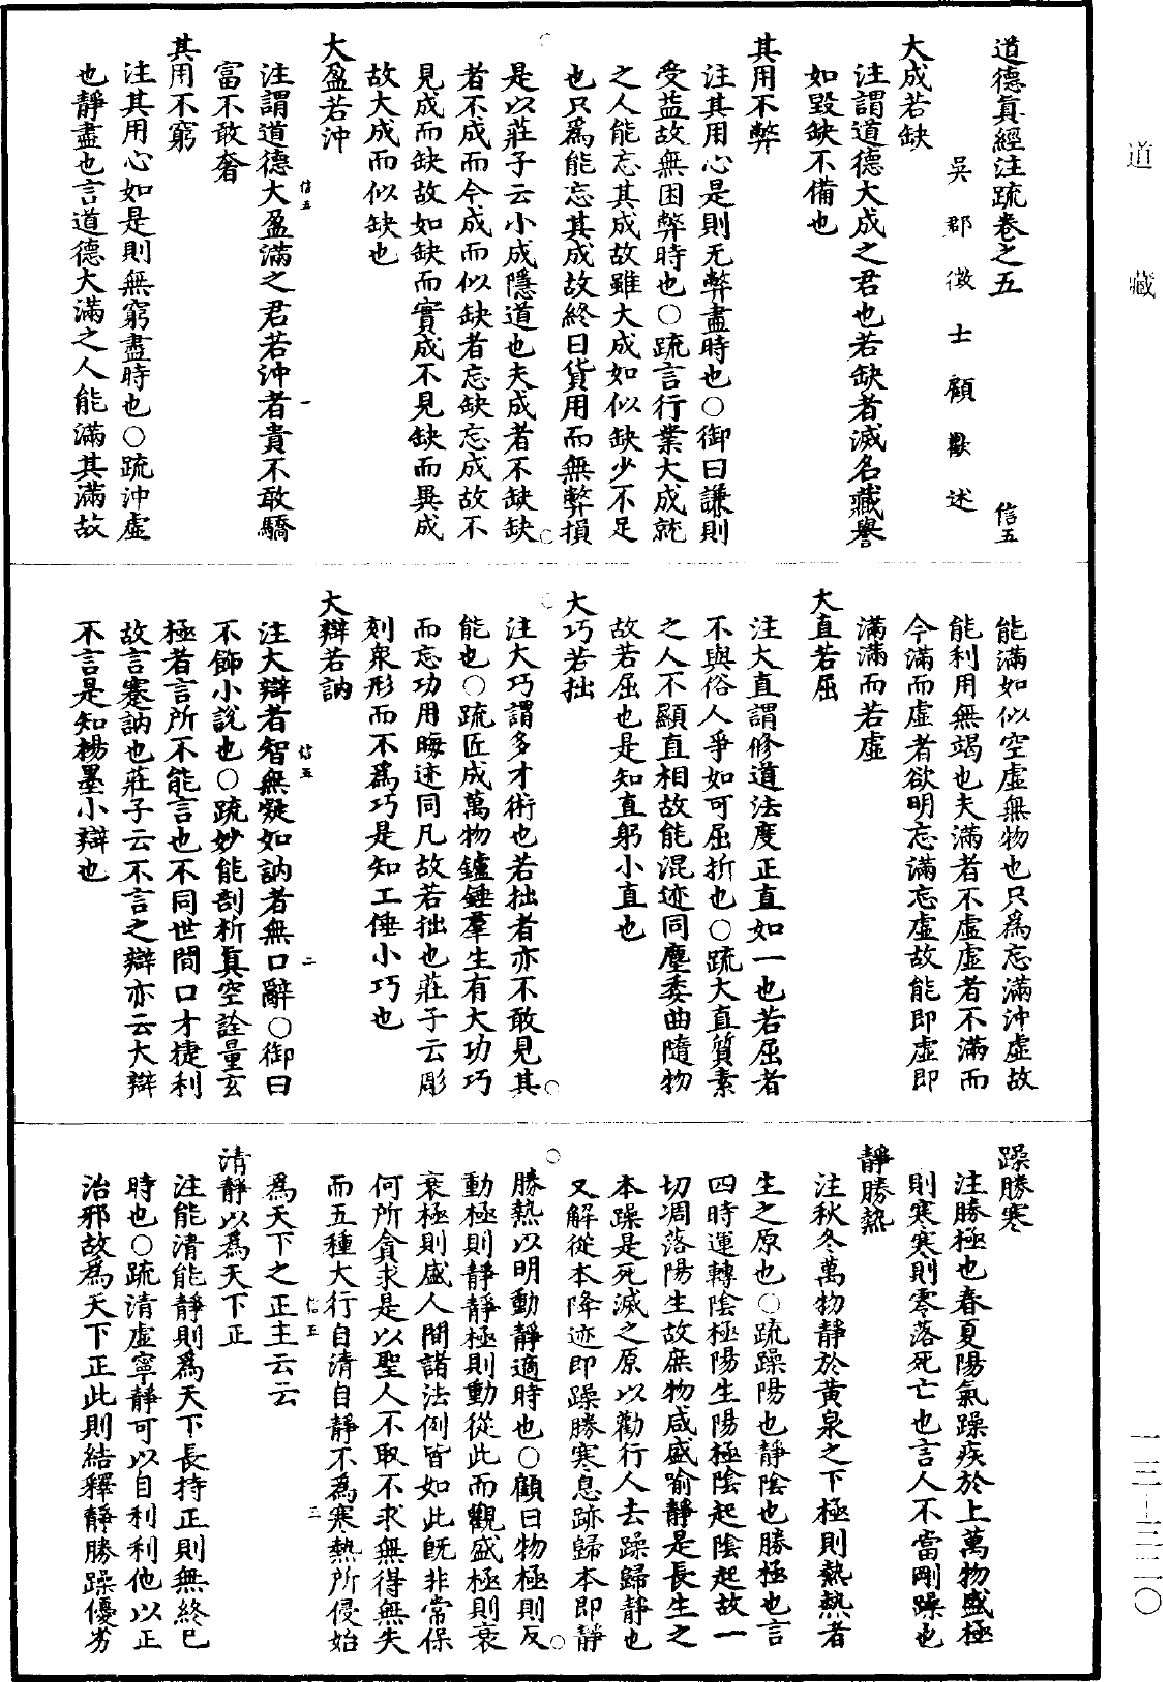 道藏
一三—三二〇
道德真經注疏卷之五 信五
吳郡徵士顧歡述
大成若缺
注謂道德大成之君也若缺者滅名藏譽
如毀缺不備也
其用不弊
注其用心是則无弊盡時也○御曰謙則
受益故無困弊時也○疏言行業大成就
之人能忘其成故雖大成如似缺少不足
也只爲能忘其成故終日貨用而無弊損
是以莊子云小成隱道也夫成者不缺缺
者不成而今成而似缺者忘缺忘成故不
見成而缺故如缺而實成不見缺而異成
故大成而似缺也
大盈若沖
注謂道德大盈滿之君若沖者貴不敢驕
信五 一
富不敢奢
其用不窮
注其用心如是則無窮盡時也○疏沖虛
也靜盡也言道德大滿之人能滿其滿故
能滿如似空虛無物也只爲忘滿沖虛故
能利用無竭也夫滿者不虛虛者不滿而
今滿而虛者欲明忘滿忘虛故能即虛即
滿滿而若虛
大直若屈
注大直謂修道法度正直如一也若屈者
不與俗人爭如可屈折也○疏大直質素
之人不顯直相故能混迹同塵委曲隨物
故若屈也是知直躬小直也
大巧若拙
注大巧謂多才術也若拙者亦不敢見其
能也○疏匠成萬物鑪錘羣生有大功巧
而忘功用晦迹同凡故若拙也莊子云彫
刻衆形而不爲巧是知工倕小巧也
大辯若訥
注大辯者智無疑如訥者無口辭○御曰
信五 二
不飾小說也○疏妙能剖析真空詮量玄
極者言所不能言也不同世間口才捷利
故言蹇訥也莊子云不言之辯亦云大辯
不言是知楊墨小辯也
躁勝寒
注勝極也春夏陽氣躁疾於上萬物盛極
則寒寒則零落死亡也言人不當剛躁也
靜勝熱
注秋冬萬物靜於黃泉之下極則熱熱者
生之原也○疏躁陽也靜陰也勝極也言
四時運轉陰極陽生陽極陰起陰起故一
切凋落陽生故庶物咸盛喻靜是長生之
本躁是死滅之原以勸行人去躁歸靜也
又解從本降迹即躁勝寒息跡歸本即靜
勝熱以明動靜適時也○顧曰物極則反
動極則靜靜極則動從此而觀盛極則衰
衰極則盛人間諸法例皆如此既非常保
何所貪求是以聖人不取不求無得無失
而五種大行自清自靜不爲寒熱所侵始
信五 三
爲天下之正主云云
清靜以爲天下正
注能清能靜則爲天下長持正則無終已
時也○疏清虛寧靜可以自利利他以正
治邪故爲天下正此則結釋靜勝躁優劣